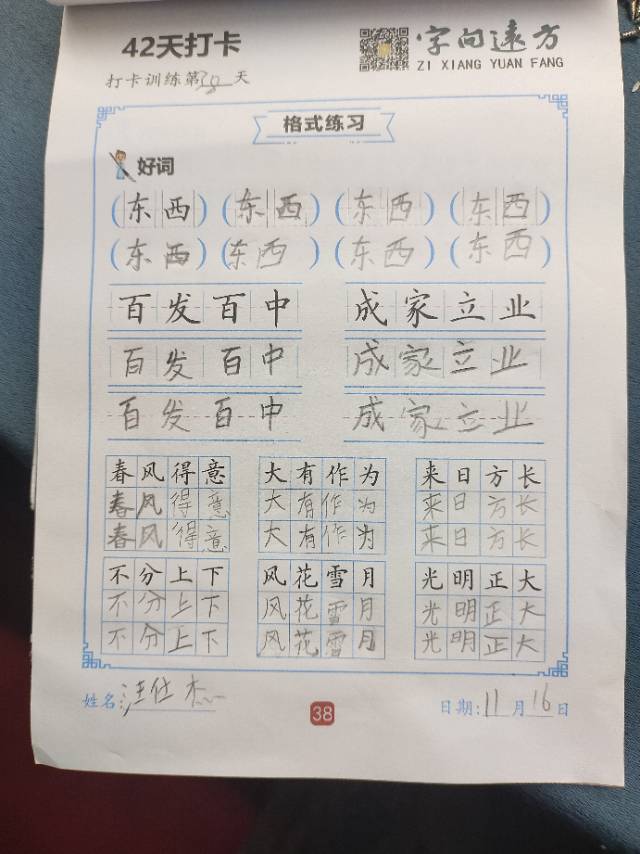 42天打卡
字问遠方
ZI XIANG YUAN FANG
打卡训练第38天
格式练习
好词
(东西) (东西) (东西) (东西)
(东西) (东西) (东西) (东西)
百发百中 成家立业
百发百中 成家立业
百发百中 成家立业
春风得意 大有作为 来日方长
春风得意 大有作为 来日方长
春风得意 大有作为 来日方长
不分上下 风花雪月 光明正大
不分上下 风花雪月 光明正大
不分上下 风花雪月 光明正大
姓名: 汪仕杰 38 日期: 11月16日